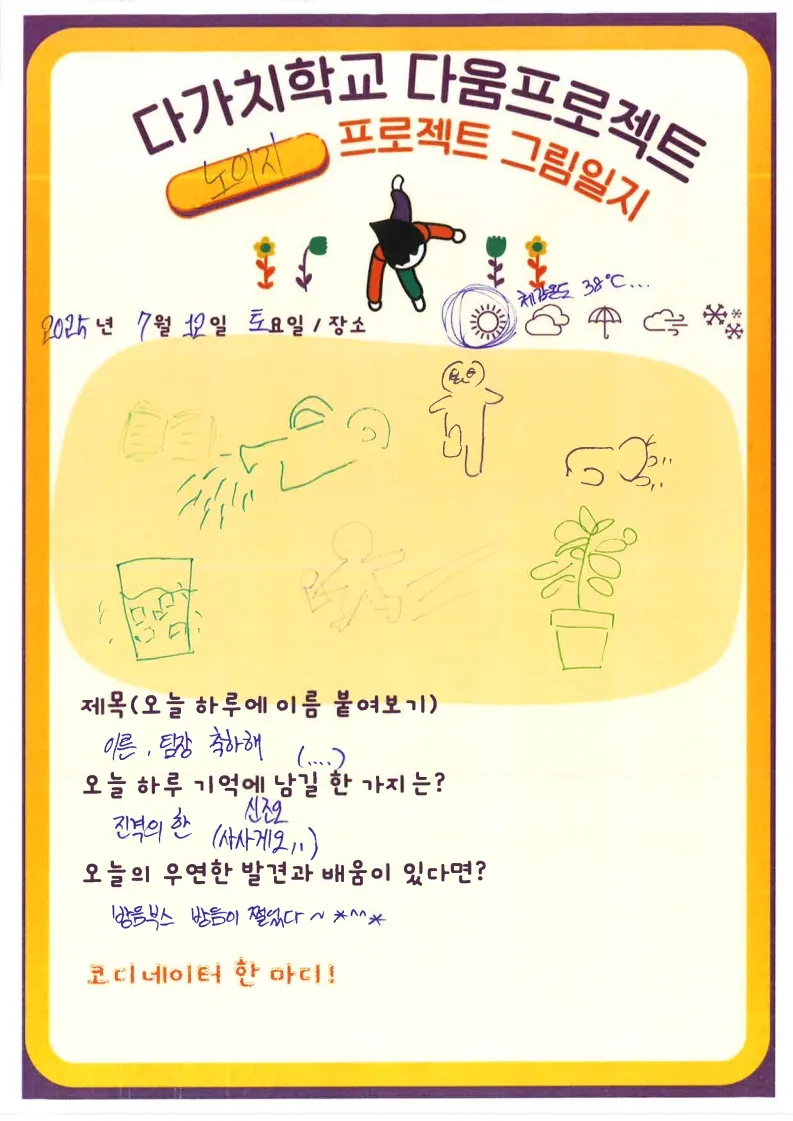 다가치학교 다움프로젝트
노이지
프로젝트 그림일지
체감온도 38℃...
2025년 7월 12일 토요일 / 장소
제목(오늘 하루에 이름 붙여보기)
이른, 팀장 축하해
(....)
오늘 하루 기억에 남길 한 가지는?
진격의 한
신조오
(사사게오,,)
오늘의 우연한 발견과 배움이 있다면?
방음부스 방음이 쩔었다~ *^^*
코디네이터 한 마디!